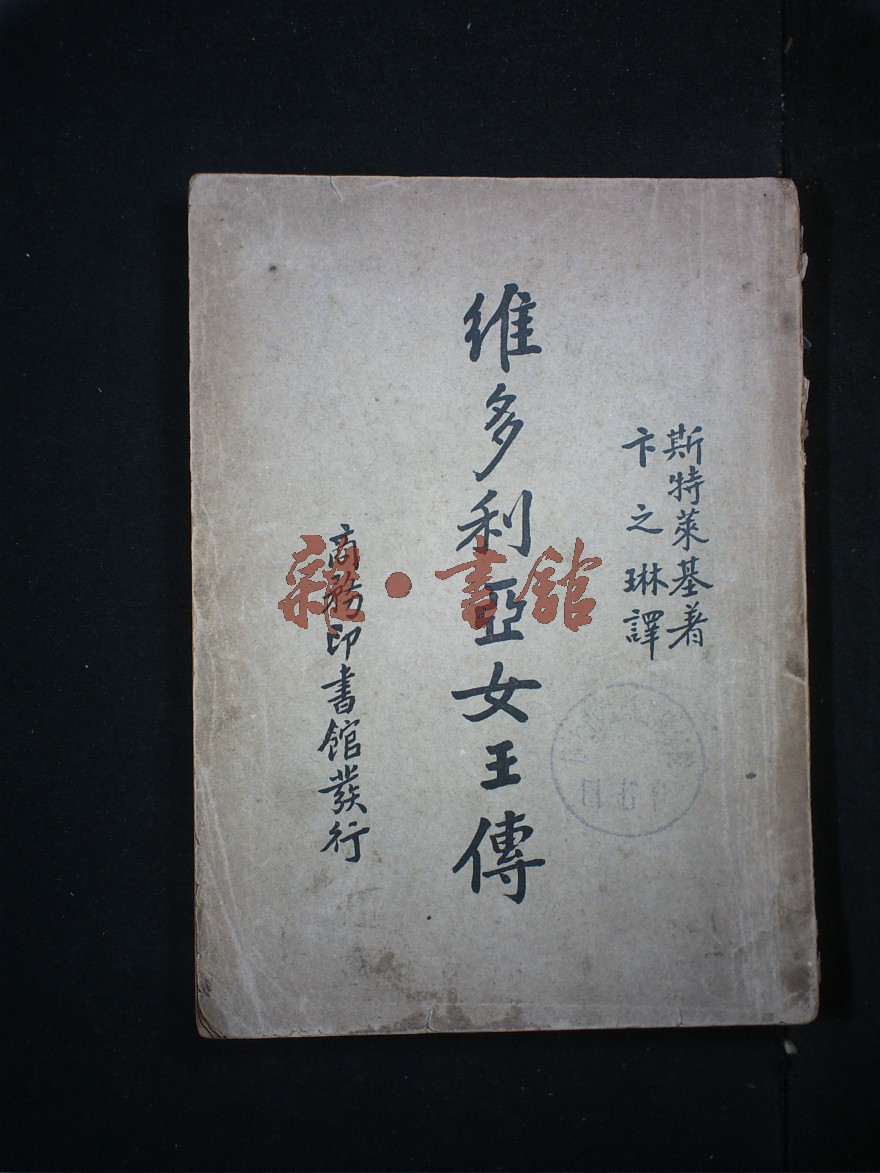 斯特萊基著
卞之琳譯
維多利亞女王傳
商務印書館發行
雜·書館